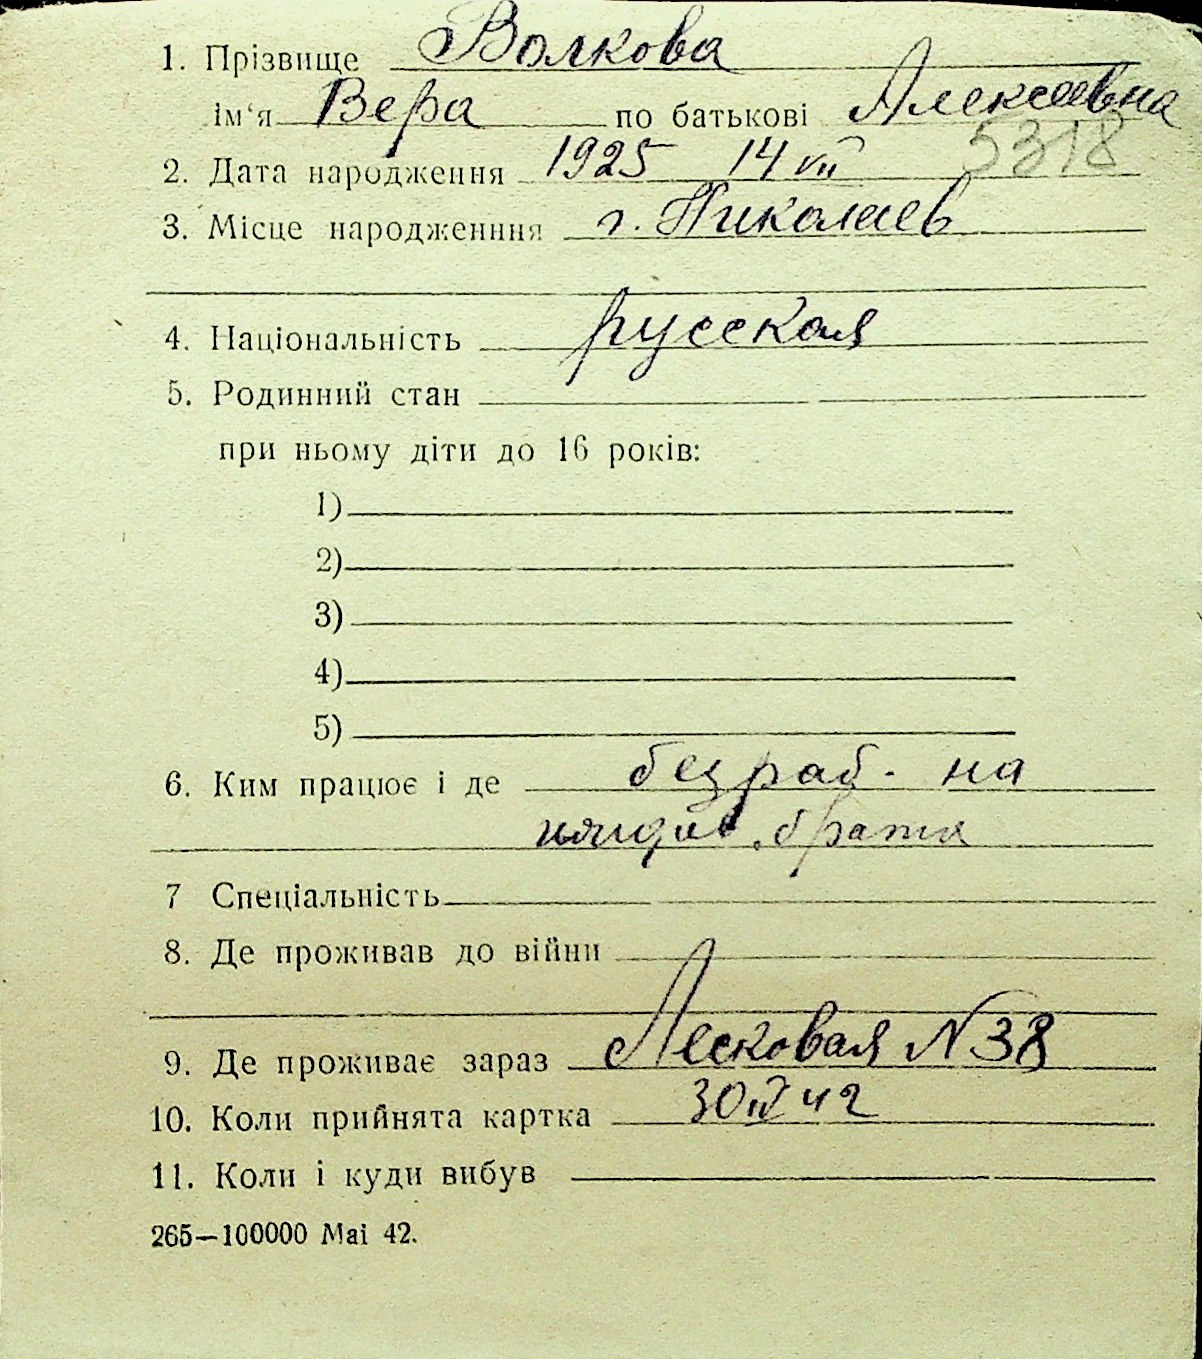 1. Прізвище Волкова
ім‘я Вера по батькові Алексеевна
5318
2. Дата народження 1925 14 VII
3. Місце народженння г. Николаев
4. Національність русская
5. Родинний стан
при ньому діти до 16 років:
1)
2)
3)
4)
5)
6. Ким працює і де безраб. на
иждив. брата
7 Спеціальність
8. Де проживав до війни
9. Де проживає зараз Лесковая N 38
10. Коли прийнята картка 30 IV 42
11. Коли і куди вибув
265—100000 Mai 42.